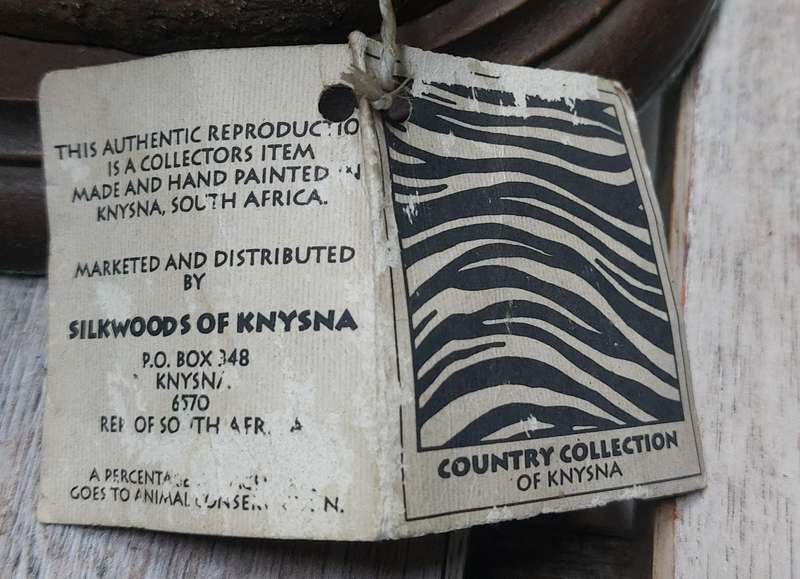 THIS AUTHENTIC REPRODUCTIO
IS A COLLECTORS ITEM
MADE AND HAND PAINTED IN
KNYSNA, SOUTH AFRICA.
MARKETED AND DISTRIBUTED
BY
SILKWOODS OF KNYSNA
P.O. BOX 348
KNYSNA
6570
REP OF SOUTH AFRICA
A PERCENTAGE
GOES TO ANIMAL CONSERVATION.
COUNTRY COLLECTION
OF KNYSNA